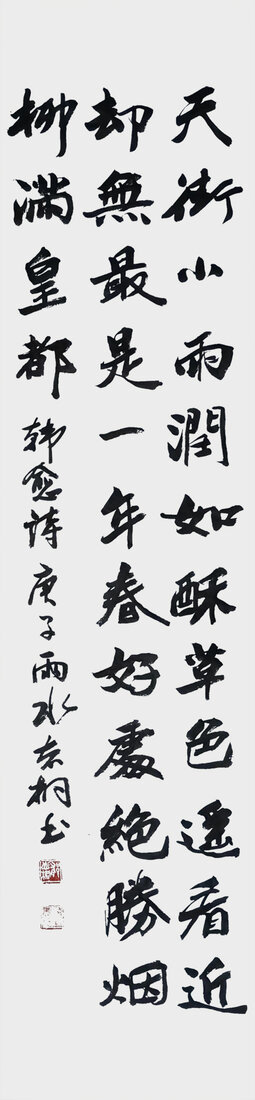 天街小雨潤如酥草色遥看近
却無最是一年春好處絶勝烟
柳滿皇都 韓愈詩 庚子雨水 桐书